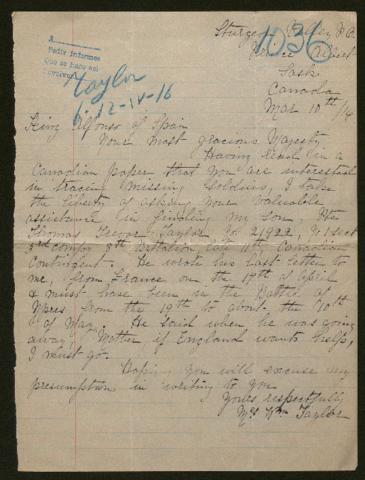 Sturgeon Valley P.O.
1036
Prince Albert
Sask
Canada
Mar 10th/16
A
Pedir informes
Que se haga así
Taylor
12-IV-16
King Alfonso of Spain
Your most gracious Majesty
Having read in a
Canadian paper that you are interested
in tracing missing soldiers, I take
the liberty of asking your valuable
assistance in finding my son, Pte
Thomas George Taylor No 21922, 11 Sect
3rd Compy 8th Battalion late 11th Canadian
Contingent. He wrote his last letter to
me, from France on the 17th of April
& must have been in the Battle of
Ypres from the 19th to about the 10th
of May. He said when he was going
away "Mother, if England wants help,
I must go.
Hoping you will excuse my
presumption in writing to you
Yours respectfully
Mrs Wm Taylor